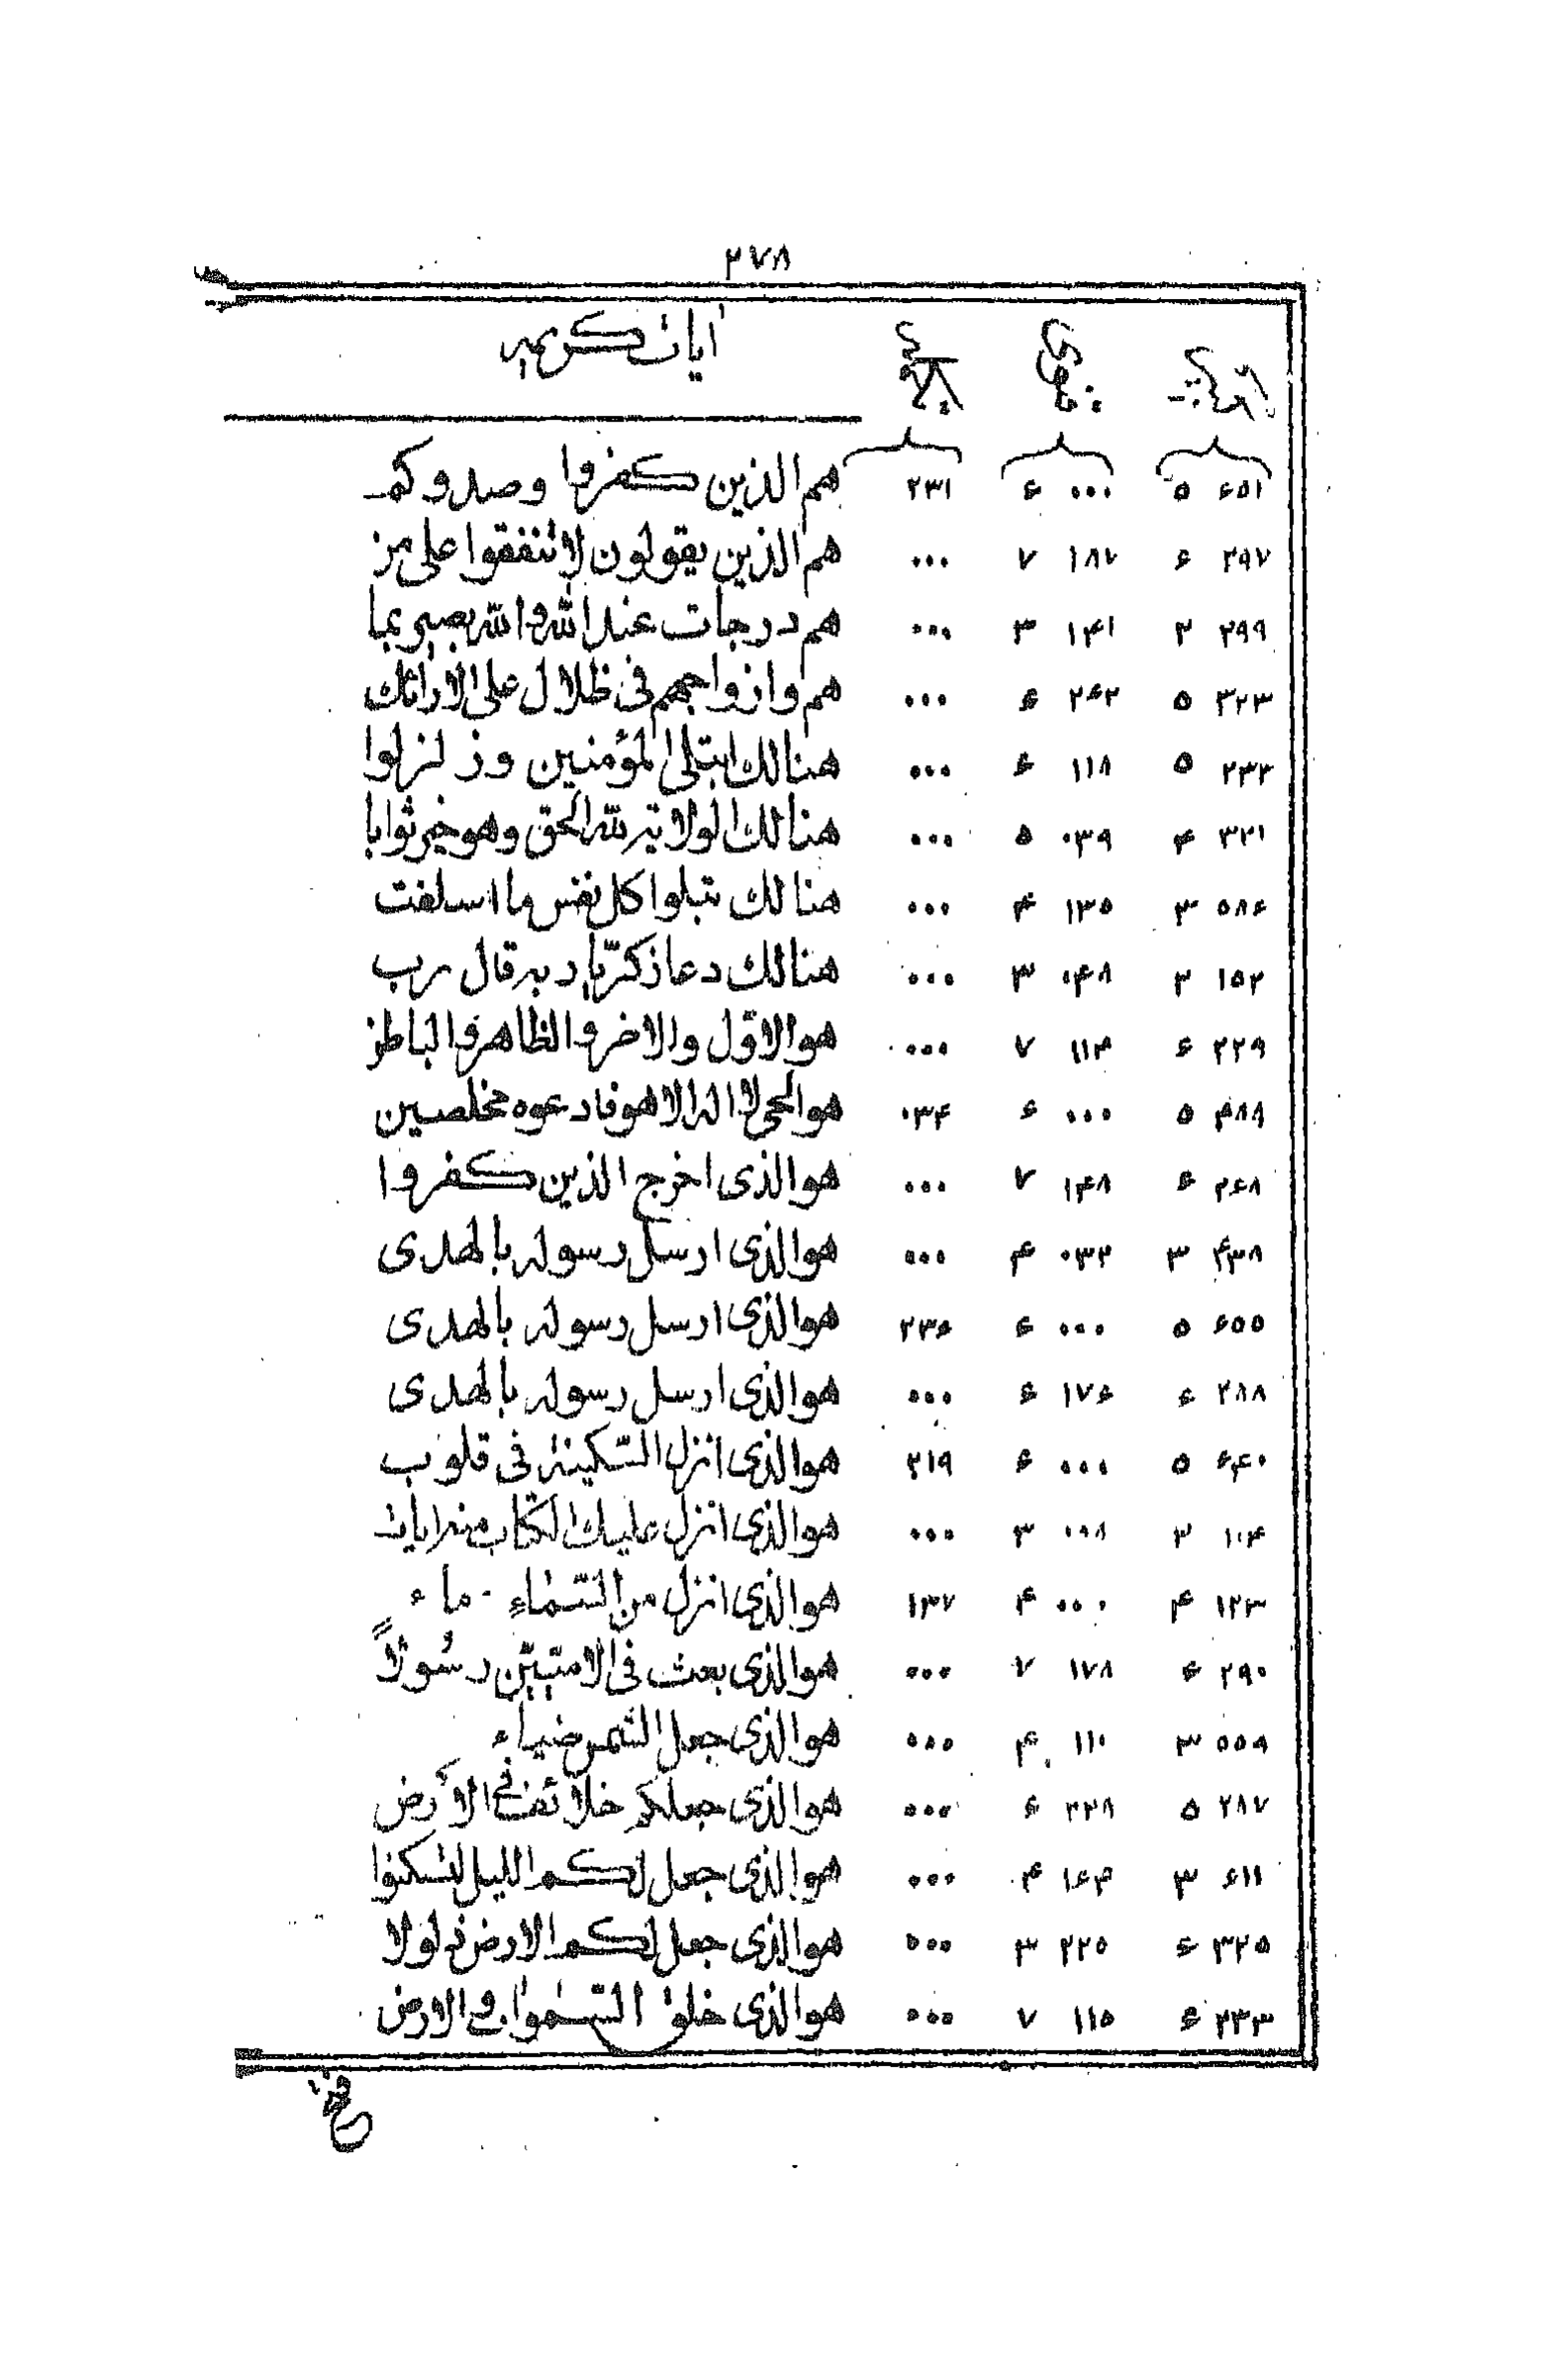 ۲۷۸
ايات كريمه
۶۵۱ ۵ ۰۰۰ ۶ ۲۳۱ هم الذين كفروا وصدوكم
۲۹۷ ۶ ۱۸۷ ۷ ۰۰۰ هم الذين يقولون لا تنفقوا على من
۲۹۹ ۲ ۱۴۱ ۳ ۰۰۰ هم درجات عند الله والله بصير بما
۳۲۳ ۵ ۲۶۲ ۶ ۰۰۰ هم وازواجهم فى ظلال على الارائك
۲۳۲ ۵ ۱۱۸ ۶ ۰۰۰ هنالك ابتلى المؤمنين وزلزلوا
۳۲۱ ۴ ۰۳۹ ۵ ۰۰۰ هنالك الولاية لله الحق وهو خير ثوابا
۵۸۶ ۳ ۱۳۵ ۴ ۰۰۰ هنالك تبلوا كل نفس ما اسلفت
۱۵۲ ۲ ۰۴۸ ۳ ۰۰۰ هنالك دعا زكريا ربه قال رب
۲۲۹ ۶ ۱۱۴ ۷ ۰۰۰ هو الاول والاخر والظاهر والباطن
۴۸۸ ۵ ۰۰۰ ۶ ۰۳۴ هو الحى لا اله الا هو فادعوه مخلصين
۲۶۸ ۶ ۱۴۸ ۷ ۰۰۰ هو الذى اخرج الذين كفروا
۴۳۸ ۳ ۰۳۲ ۴ ۰۰۰ هو الذى ارسل رسوله بالهدى
۶۵۵ ۵ ۰۰۰ ۶ ۲۳۶ هو الذى ارسل رسوله بالهدى
۲۸۸ ۶ ۱۷۶ ۶ ۰۰۰ هو الذى ارسل رسوله بالهدى
۶۴۰ ۵ ۰۰۰ ۶ ۲۱۹ هو الذى انزل السّكينة فى قلوب
۱۰۴ ۲ ۰۰۸ ۳ ۰۰۰ هو الذى انزل عليك الكتاب منه ايات
۱۲۳ ۴ ۰۰۰ ۴ ۱۳۷ هو الذى انزل من السّماءِ ماء
۲۹۰ ۶ ۱۷۸ ۷ ۰۰۰ هو الذى بعث فى الامّيّين رسُولاً
۵۵۹ ۳ ۱۱۰ ۴ ۰۰۰ هو الذى جعل الشّمس ضياء
۲۸۷ ۵ ۲۲۸ ۶ ۰۰۰ هو الذى جعلكم خلائف فى الارض
۶۱۱ ۳ ۱۶۴ ۴ ۰۰۰ هو الذى جعل لكم الليل لتسكنوا
۳۲۵ ۶ ۲۲۵ ۳ ۰۰۰ هو الذى جعل لكم الارض ذلولا
۲۳۳ ۶ ۱۱۵ ۷ ۰۰۰ هو الذى خلق السّموات والارض